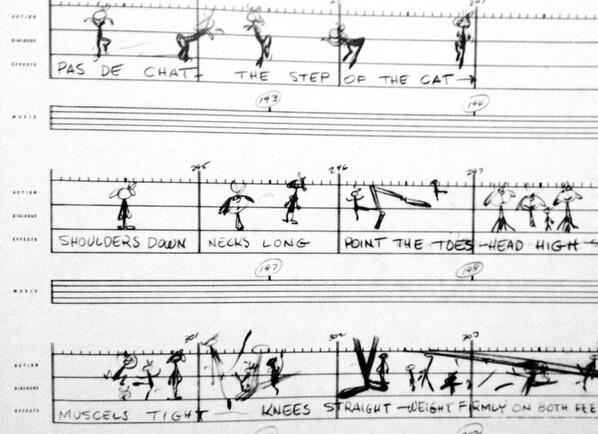 ACTION
DIALOGUE
EFFECTS
PAS DE CHAT- THE STEP OF THE CAT→
193
194
MUSIC
295 296 297
ACTION
DIALOGUE
EFFECTS
SHOULDERS DOWN NECKS LONG POINT THE TOES-HEAD HIGH-
197
198
MUSIC
301 302 303
ACTION
DIALOGUE
EFFECTS
MUSCELS TIGHT KNEES STRAIGHT-WEIGHT FIRMLY ON BOTH FEE